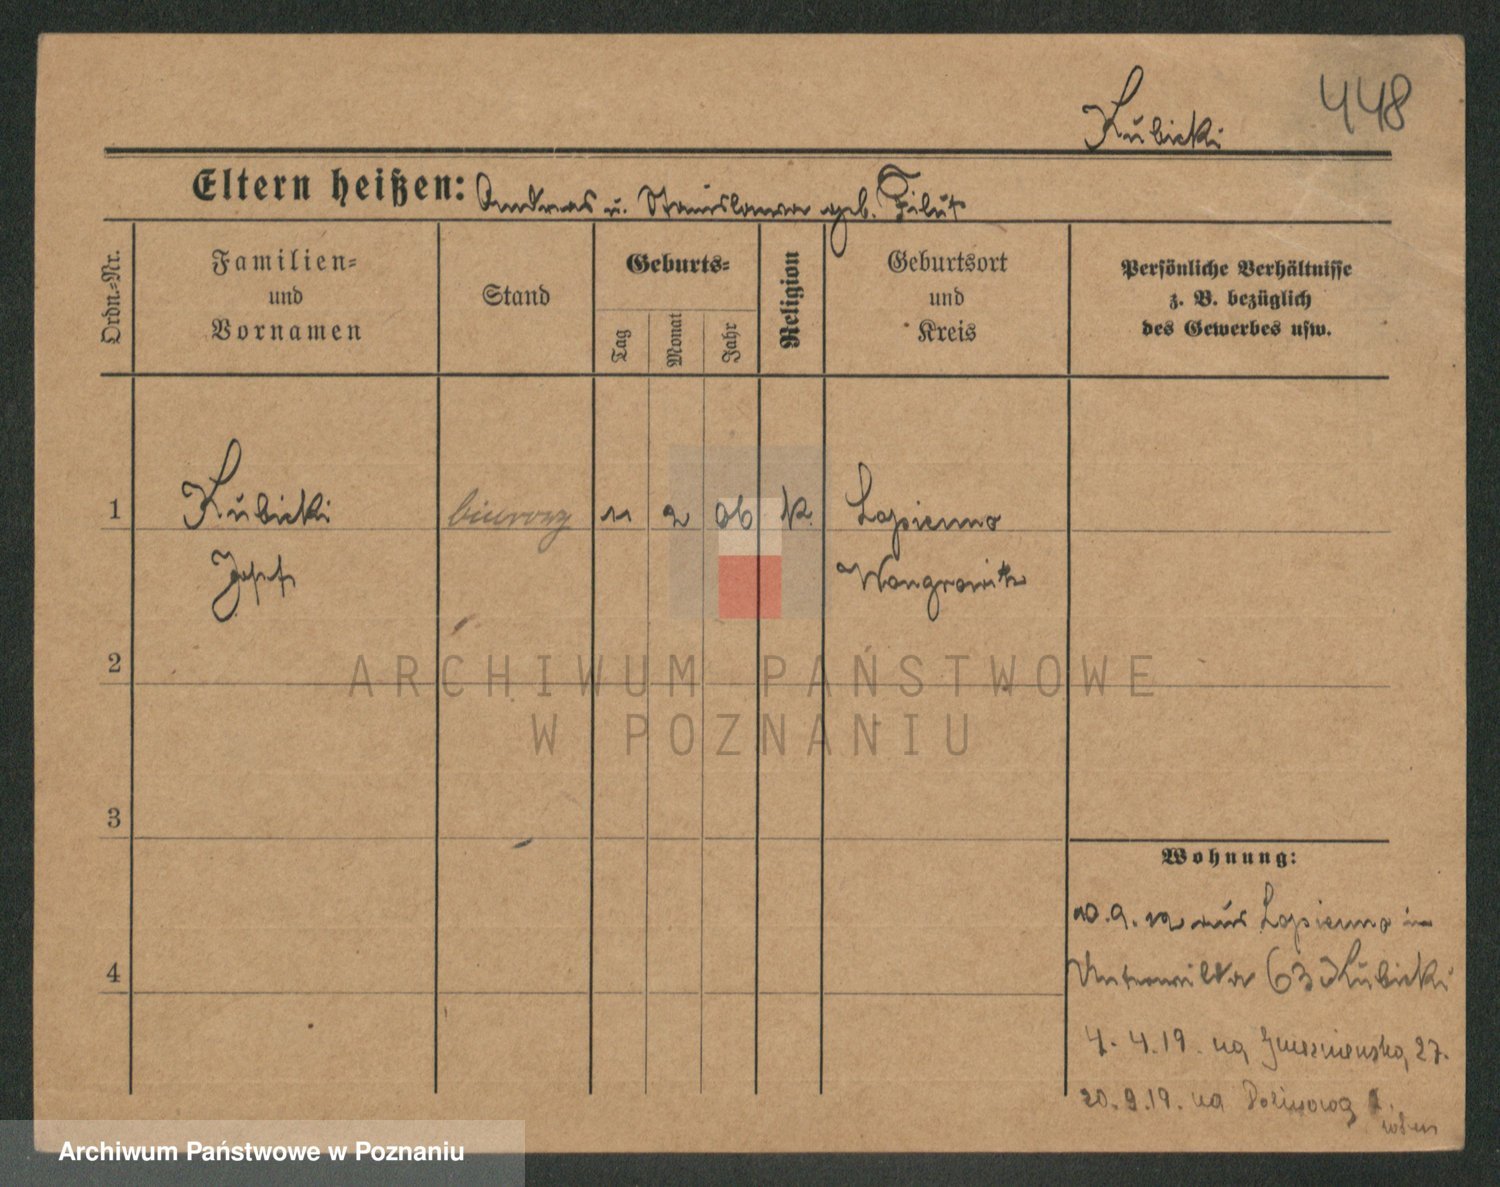 448
Kubicki
Eltern heißen: Andreas u. Stanislawa geb. Filut
Ordn.-Nr.
Familien-
und
Vornamen
Stand
Geburts-
Tag
Monat
Jahr
Religion
Geburtsort
und
Kreis
Persönliche Verhältnisse
z. B. bezüglich
des Gewerbes usw.
1
Kubicki
Josef
biurowy
11
2
06
k.
Lopienno
Wongrowitz
2
3
4
ARCHIWUM PAŃSTWOWE
W POZNANIU
Wohnung:
10.9.12 aus Lopienno in
Unterwilda 63 Kubicki
4.4.19. na Gnieznienską 27.
20.9.19. na
Archiwum Państwowe w Poznaniu